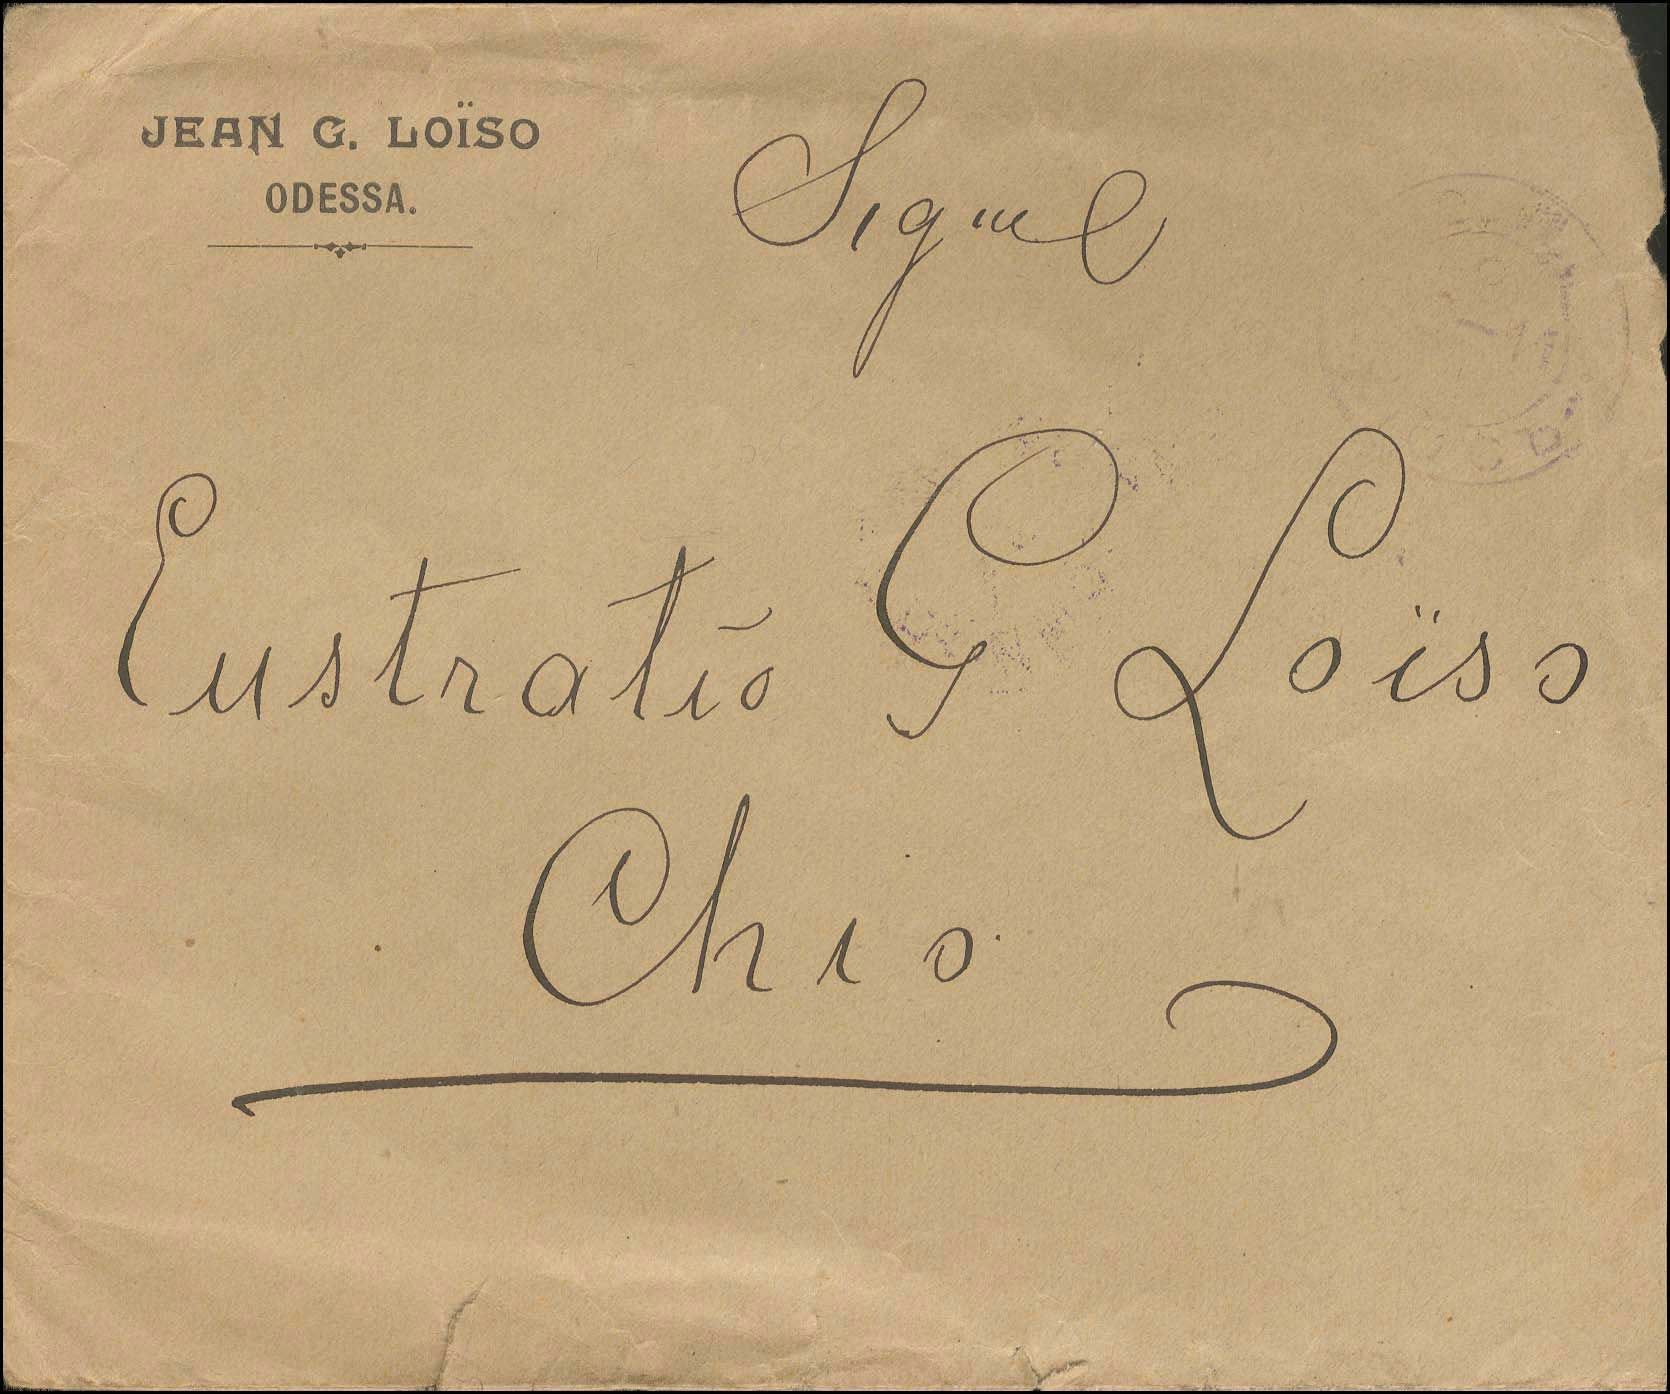 JEAN G. LOÏSO
ODESSA.
Signe
Eustratio G Loïso
Chio